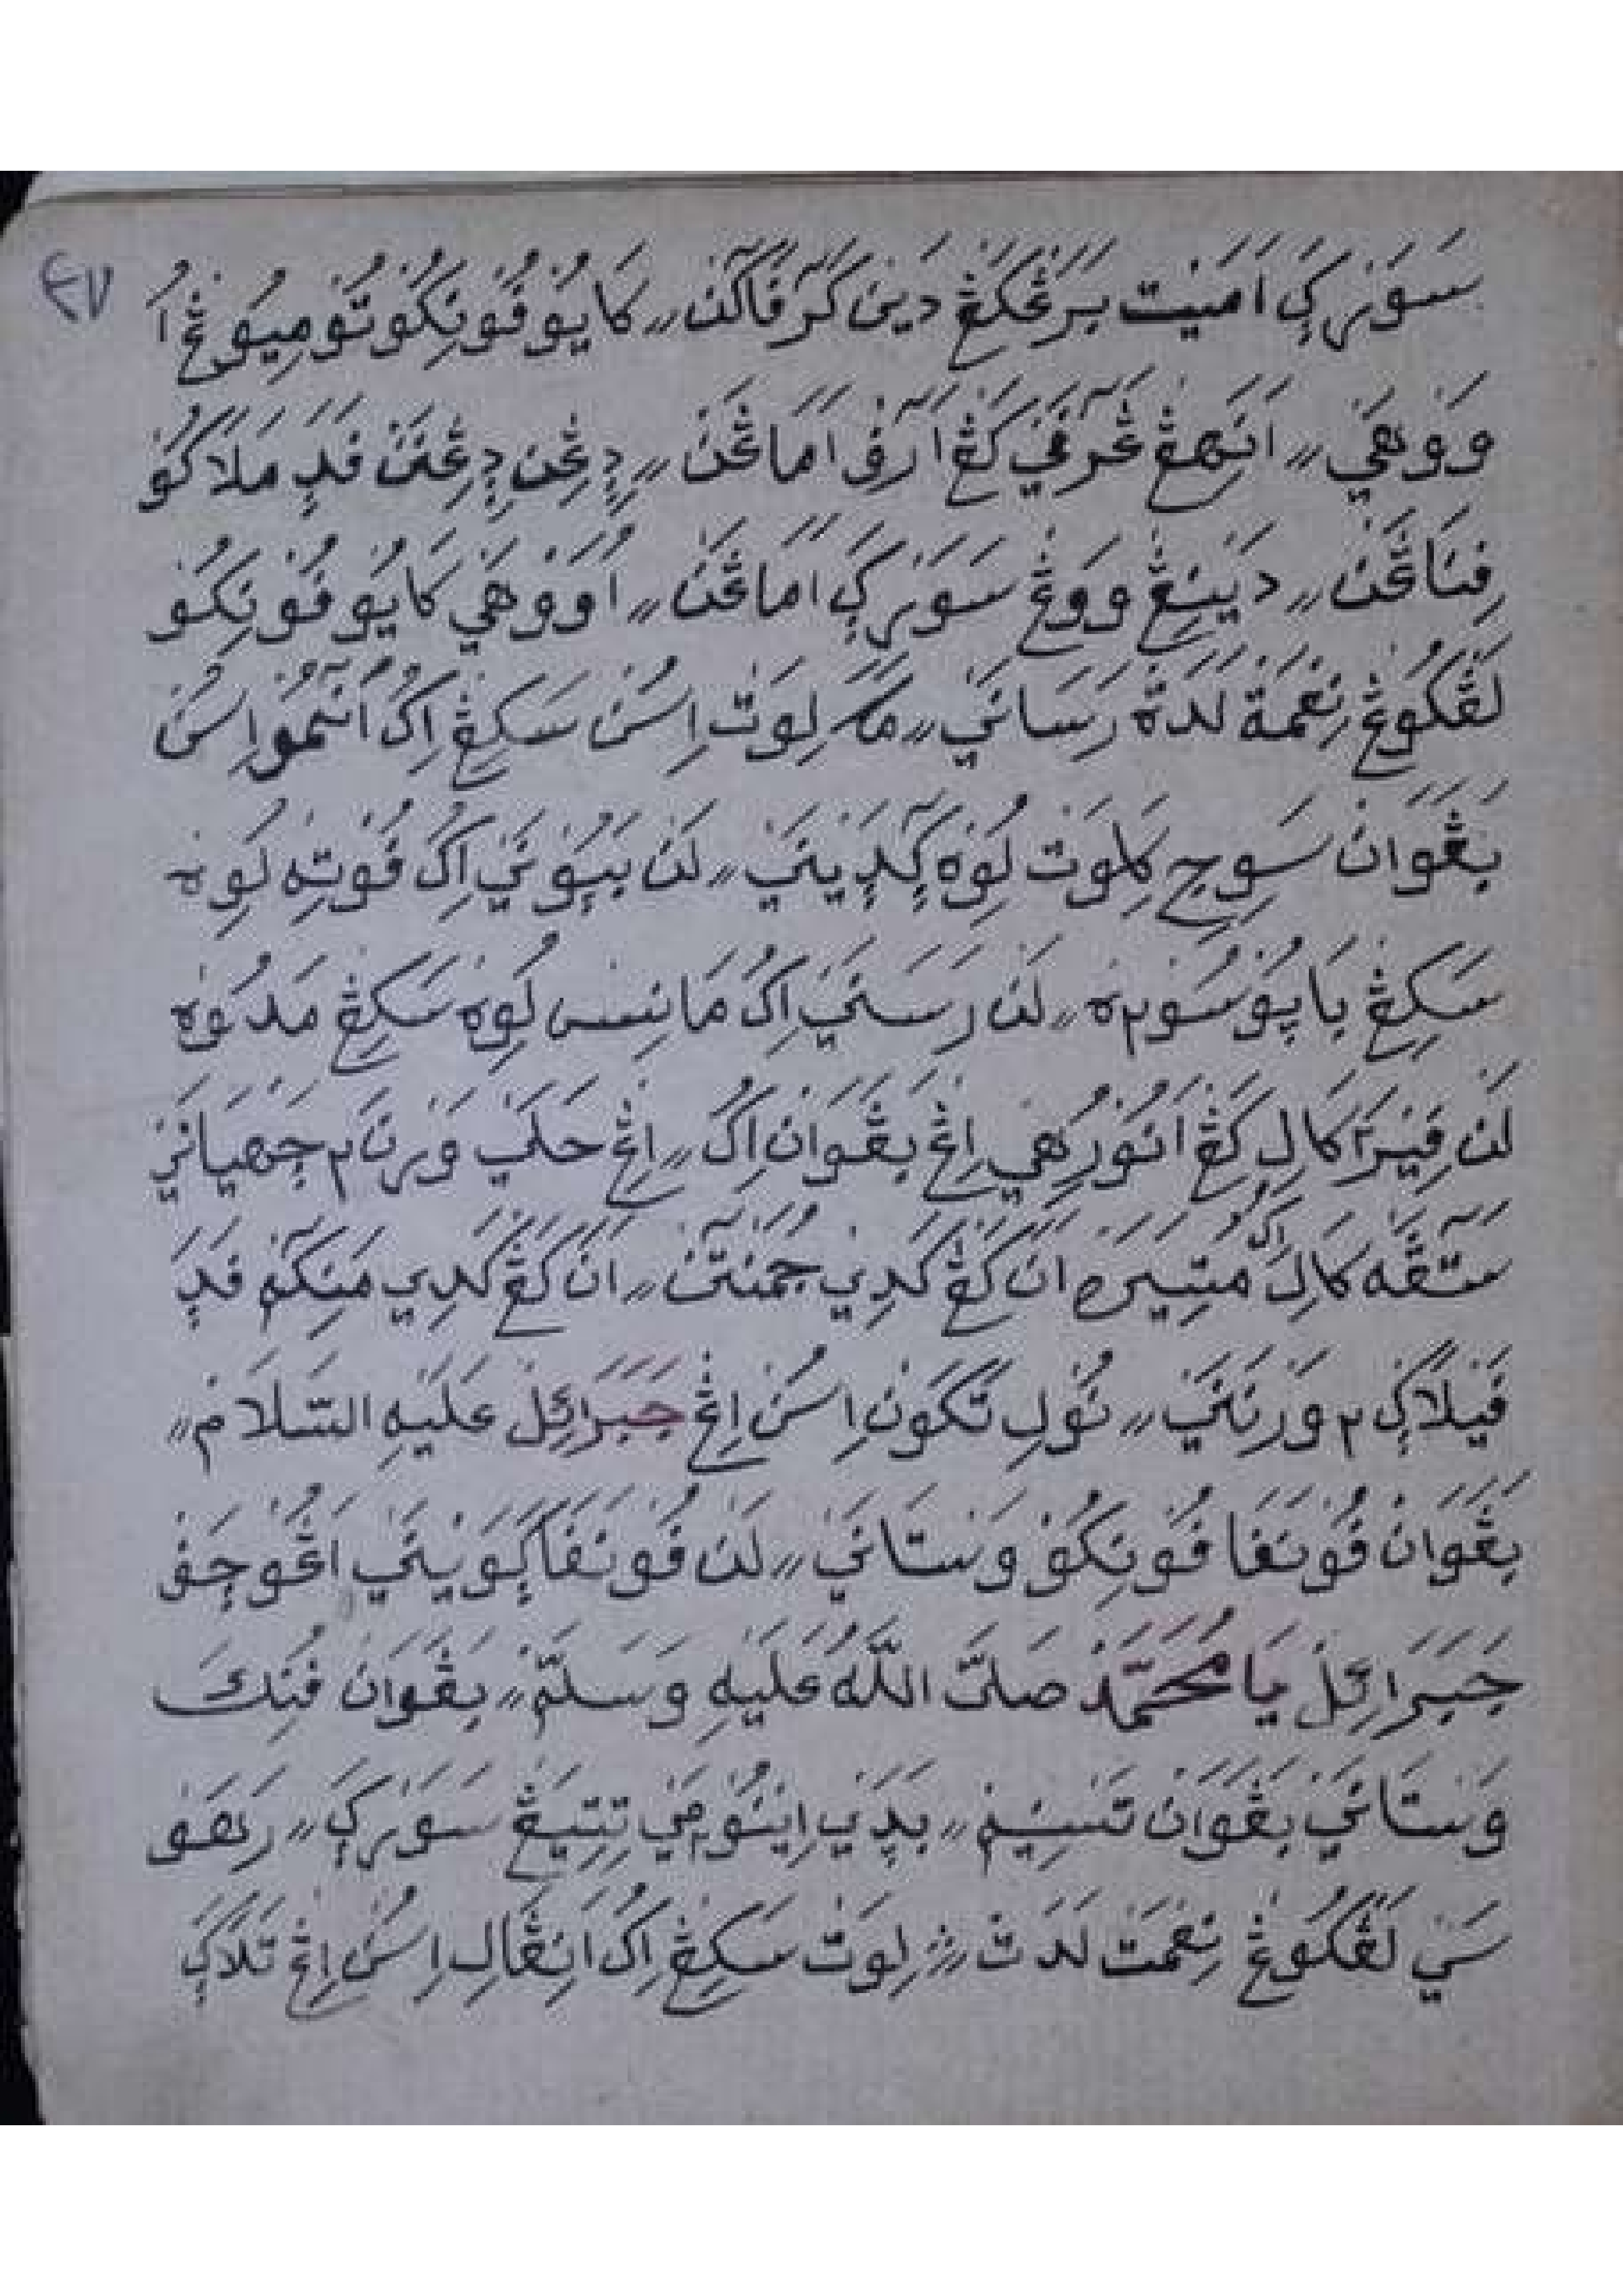 ٤٧
سَوَرْكَا اَمَيْت بَرَڠْكَڠْ دَيْنَ كَرْفَاكَنْ ،، كَايُوْ فُوْنِكُوْ تُوْمِيُوْڠْ اُ
وَوْهَيْ ،، اَنَهڠْ عَرَفَيْ كَڠْ اَرَفْ اَمَاڠَنْ ،، دٍڠَن دٍڠَنَنْ فَدٍ مَلَاكُوْ
فِنَاڠَنْ ،، دَيْنِڠْ وَوڠْ سَوَرْكَا اَمَاڠَنْ ،، اُوَوْهَيْ كَايُوْ فُوْنِكُوْ
لَڠْكُوڠْ نِعْمَة لَدَة رَسَانَيْ ،، مَكَ لِوَتْ اِسُنْ سَكِڠْ اِكُ اَنَّمُوْ اِسُنْ
بَڠَوَانْ سَوِجِ كَلِوَتْ لُوِهْ كٍدَيْنَيْ ،، لَنْ بَپُوْنَيْ اِكُ فُوْتِهْ لُوِهْ
سَكِڠْ بَاپُوْ سُوْم٢هْ ،، لَنْ رَسَنَيْ اِكُ مَانِسْ لُوِهْ سَكِڠْ مَدُوْهْ
لَنْ فِيْرَا٢ كَالِ كَڠْ اَنُوْرُهَيْ اِڠْ بَڠَوَانْ اِكُ ،، اِڠْ حَلَيْ وَرْنَ٢ جَهْيَانَيْ
سَتَڠَهْ كَالِ اِكُ مُتِيَرَهْ اَنَ كَڠْ كَدِيْ جُمَنْتَنْ ،، اَنَ كَڠْ كَدِيْ مَنِكَمْ فَدَ
فَيْلَاكِ٢ وَرْنَنَيْ ،، نُوْلِ تَكَوْنْ اِسُنْ اِڠْ جَبَرَائِلْ عَلَيْهِ السَّلَامْ ،،
بَڠَوَانْ فُوْنَفَا فُوْنِكُوْ وَسْتَانَيْ ،، لَنْ فُوْنَفَا كٍوَيْنَيْ اَڠُوْجَفْ
جَبَرَائِلْ يَا مُحَمَّدْ صَلَّى اللّٰهُ عَلَيْهِ وَسَلَّمْ ،، بَڠَوَانْ فُنِكَ
وَسْتَانَيْ بَڠَوَانْ تَسْنِيْمْ ،، بَدٍيْ اِيْنُوْم٢يْ تِتِيَڠْ سَوَرْكَا ،، رَهَفْ
سَيْ لَڠْكُوڠْ نِعْمَتْ لَدَتْ ؞ لِوَتْ سَكِڠْ اِكُ اَنِڠَالِ اِسُنْ اِڠْ تَلَاكَ